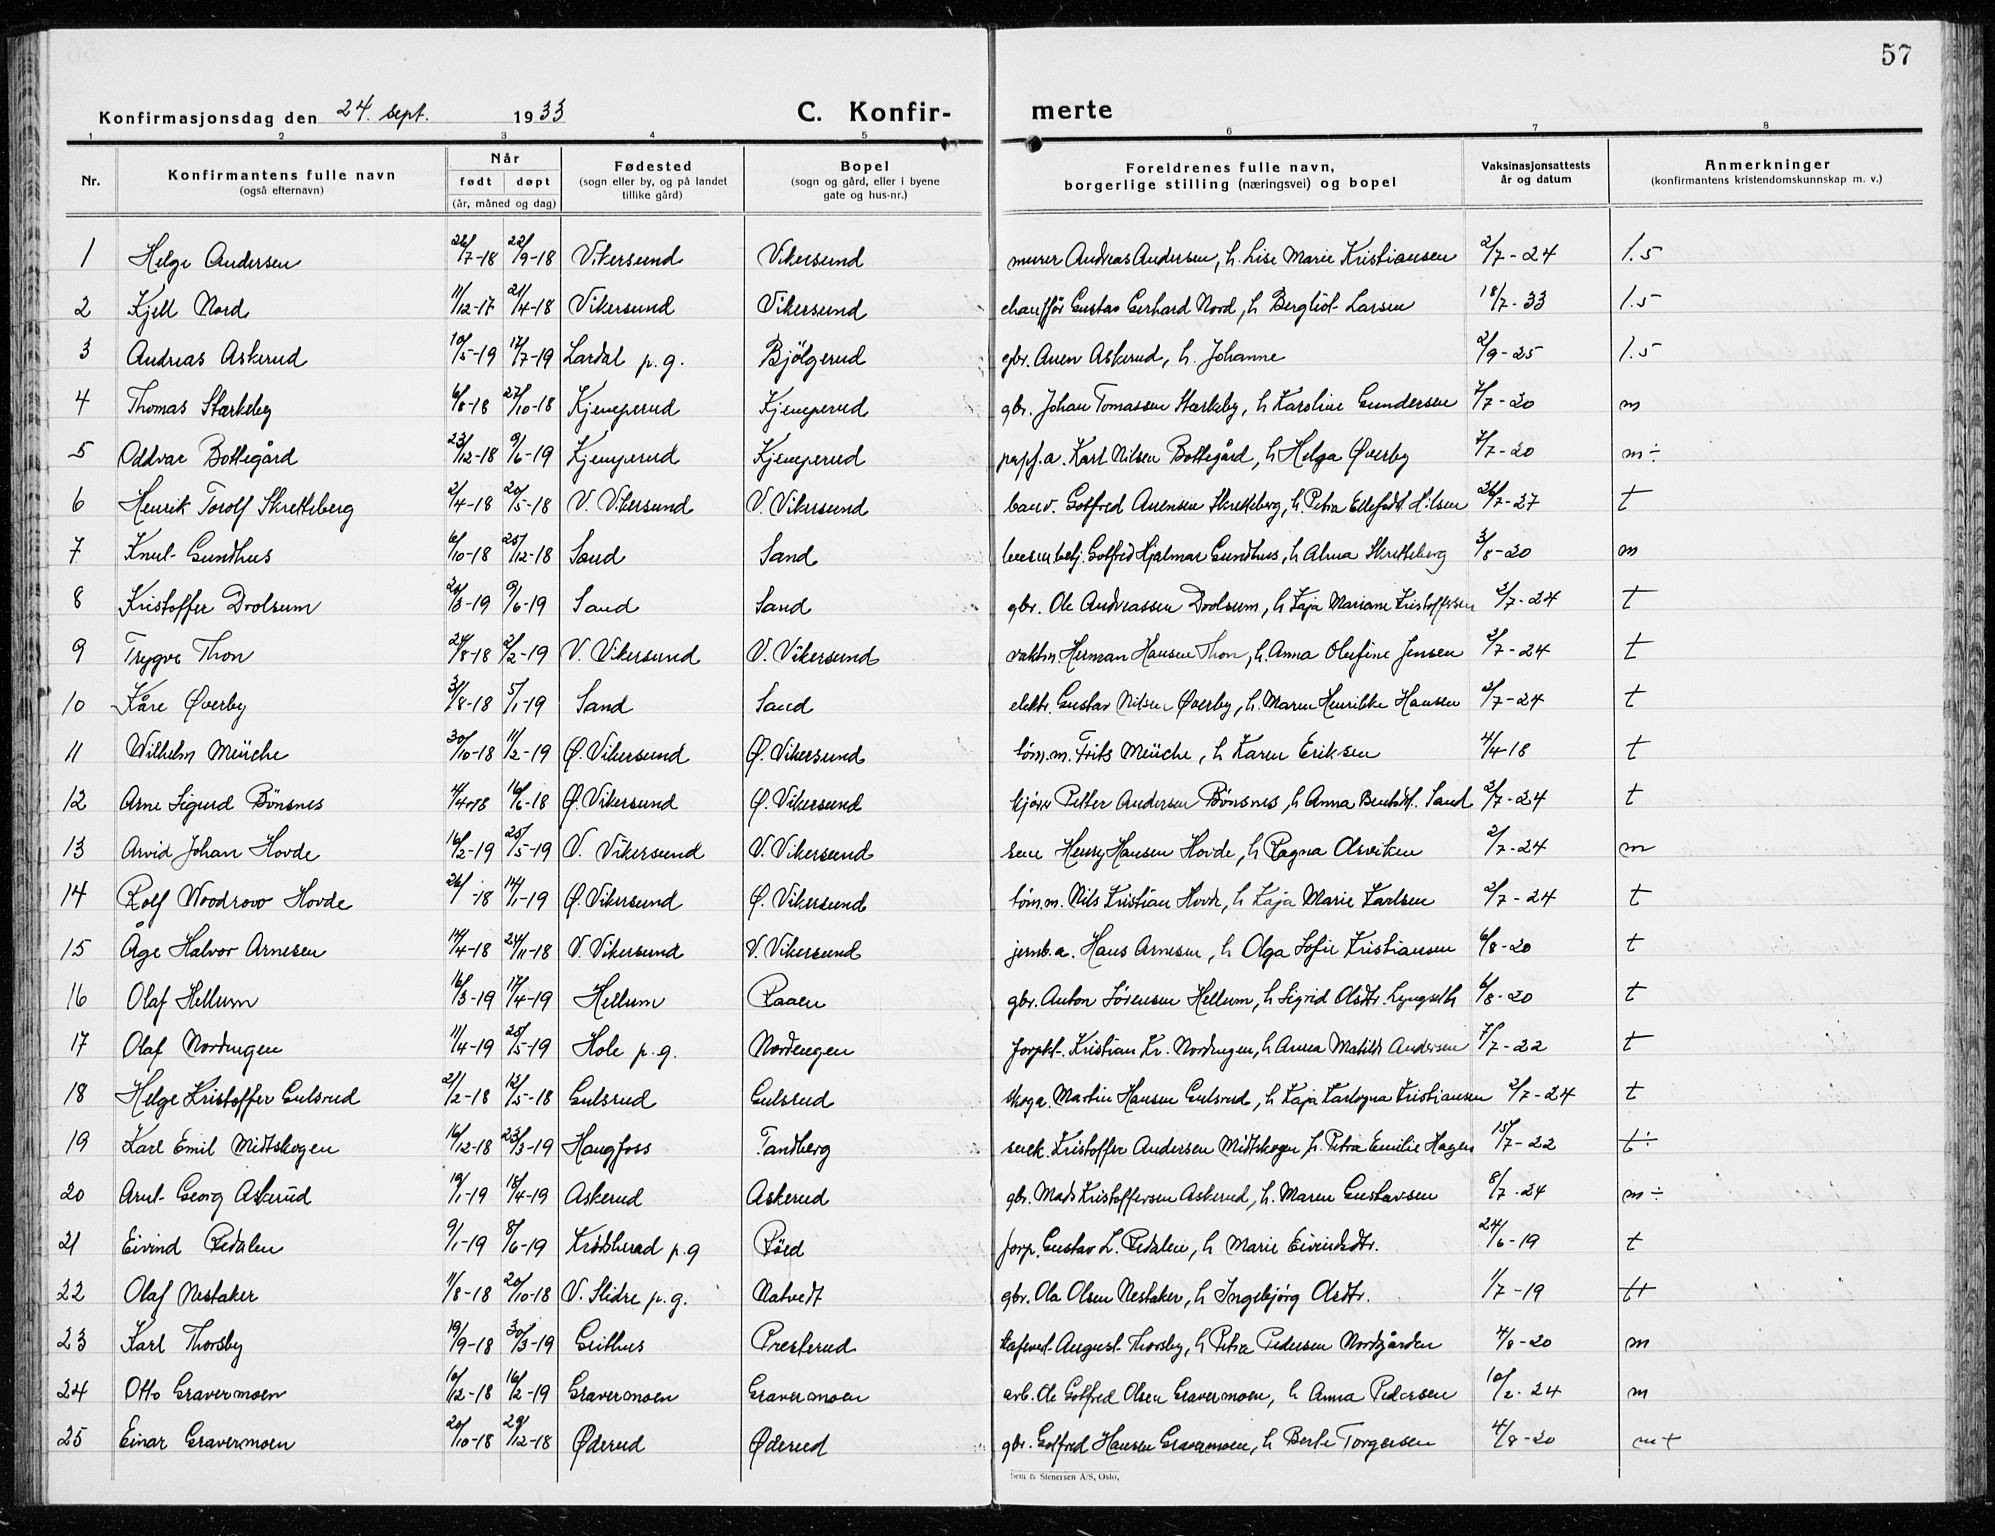 57
Konfirmasjonsdag den 24. sept. 1933 C. Konfir- merte
1 2 3 4 5 6 7 8
Nr. Konfirmantens fulle navn (også efternavn) Når født døpt (år, måned og dag) Fødested (sogn eller by, og på landet tillike gård) Bopel (sogn og gård, eller i byene gate og hus-nr.) Foreldrenes fulle navn, borgerlige stilling (næringsvei) og bopel Vaksinasjonsattests år og datum Anmerkninger (konfirmantens kristendomskunnskap m. v.)
1 Helge Andersen 26/7-18 22/9-18 Vikersund Vikersund murer Andreas Andersen, h. Lise Marie Kristiansen 2/7-24 1.5
2 Kjell Nord 11/12-17 21/4-18 Vikersund Vikersund chauffør Gustav Gerhard Nord, h Bergliot Larsen 18/7-33 1.5
3 Andreas Askerud 10/5-19 17/7-19 Lardal p.g. Bjölgerud gbr. Anen Askerud, h. Johanne 2/9-25 1.5
4 Thomas Starkeby 6/8-18 27/10-18 Kjemperud Kjemperud gbr. Johan Tomassen Starkeby, h Karoline Gundersen 7/7-20 m
5 Oddvar Bottegård 23/12-18 9/6-19 Kjemperud Kjemperud papf.a. Karl Nilsen Bottegård, h Helga Øverby 7/7-20 m÷
6 Henrik Torolf Skretteberg 2/4-18 20/5-18 V. Vikersund V. Vikersund banv. Gotfred Anensen Skretteberg, h. Petra Ellefsdt. Nilsen 26/7-27 t
7 Knut Gundhus 6/10-18 25/12-18 Sand Sand Gotfred Hjalmar Gundhus, h Alma Skretteberg 3/8-20 m
8 Kristoffer Drolsum 26/3-19 9/6-19 Sand Sand gbr. Ole Andreassen Drolsum, h Kaja Mariane Kristoffersen 2/7-24 t
9 Trygve Thon 24/8-18 2/2-19 V. Vikersund V. Vikersund vaktm. Herman Hansen Thon, h. Anna Olufine Jensen 2/7-24 t
10 Kåre Øverby 31/8-18 5/1-19 Sand Sand elektr. Gustav Nilsen Øverby, h. Maren Henrikke Hansen 2/7-24 t
11 Wilhelm Meüche 30/10-18 11/2-19 Ø. Vikersund Ø. Vikersund töm.m. Frits Meüche, h Karen Eriksen 4/4-18 t
12 Arne Sigurd Bönsnes 16/6-18 Ø. Vikersund Ø. Vikersund kjörer Petter Andersen Bönsnes, h Anna Bentsdt. Sand 2/7-24 t
13 Arvid Johan Hovde 16/2-19 25/5-19 V. Vikersund V. Vikersund Henry Hansen Hovde, h Ragna Olsviken 2/7-24 m
14 Rolf Woodrow Hovde 26/ -18 14/1-19 Ø. Vikersund Ø. Vikersund töm.m. Nils Kristian Hovde, h Kaja Marie Karlsen 2/7-24 t
15 Åge Halvor Arnesen 14/4-18 24/11-18 V. Vikersund V. Vikersund jernb.a. Hans Arnesen, h Olga Sofie Kristiansen 6/8-20 t
16 Olaf Hellum 16/3-19 17/4-19 Hellum Raaen gbr. Anton Sörensen Hellum, h Sigrid Olsdtr. Lyngseth 6/8-20 t
17 Olaf Nordengen 11/4-19 25/5-19 Hole p.g. Nordengen forpkt. Kristian Kr. Nordengen, h Anna Matilde Andersen 7/7-22 t
18 Helge Kristoffer Gulsrud 21/2-18 12/5-18 Gulsrud Gulsrud skoga. Martin Hansen Gulsrud, h Kaja Karlogna Kristiansen 2/7-24 t
19 Karl Emil Midtskogen 16/12-18 23/3-19 Haugfoss Tandberg snek. Kristoffer Andersen Midtskogen, h. Petra Emilie Hagen 15/7-22 t÷
20 Arnt Georg Askerud 19/1-19 15/4-19 Askerud Askerud gbr. Mads Kristoffersen Askerud, h. Maren Gustavsen 8/7-24 m÷
21 Eivind Redalen 9/1-19 8/6-19 Krödsherad p.g Röed forp. Gustav L. Redalen, h Marie Eivindsdtr. 24/6-19 t
22 Olaf Nestaker 11/8-18 20/10-18 V. Slidre p.g. Natvedt gbr. Ola Olsen Nestaker, h Ingebjørg Olsdtr. 1/7-19 t+
23 Karl Thorsby 19/9-18 30/3-19 Grithus Presterud kafevert August Thorsby, h Petra Pedersen Nordgården 4/8-20 m
24 Otto Gravermoen 10/12-18 16/2-19 Gravermoen Gravermoen arb. Ole Gotfred Olsen Gravermoen, h Anna Pedersen 10/2-24 m
25 Einar Gravermoen 20/10-18 29/12-18 Øderud Øderud gbr. Gotfred Hansen Gravermoen, h Berte Torgersen 4/8-20 m+
Sem & Stenersen A/S, Oslo.